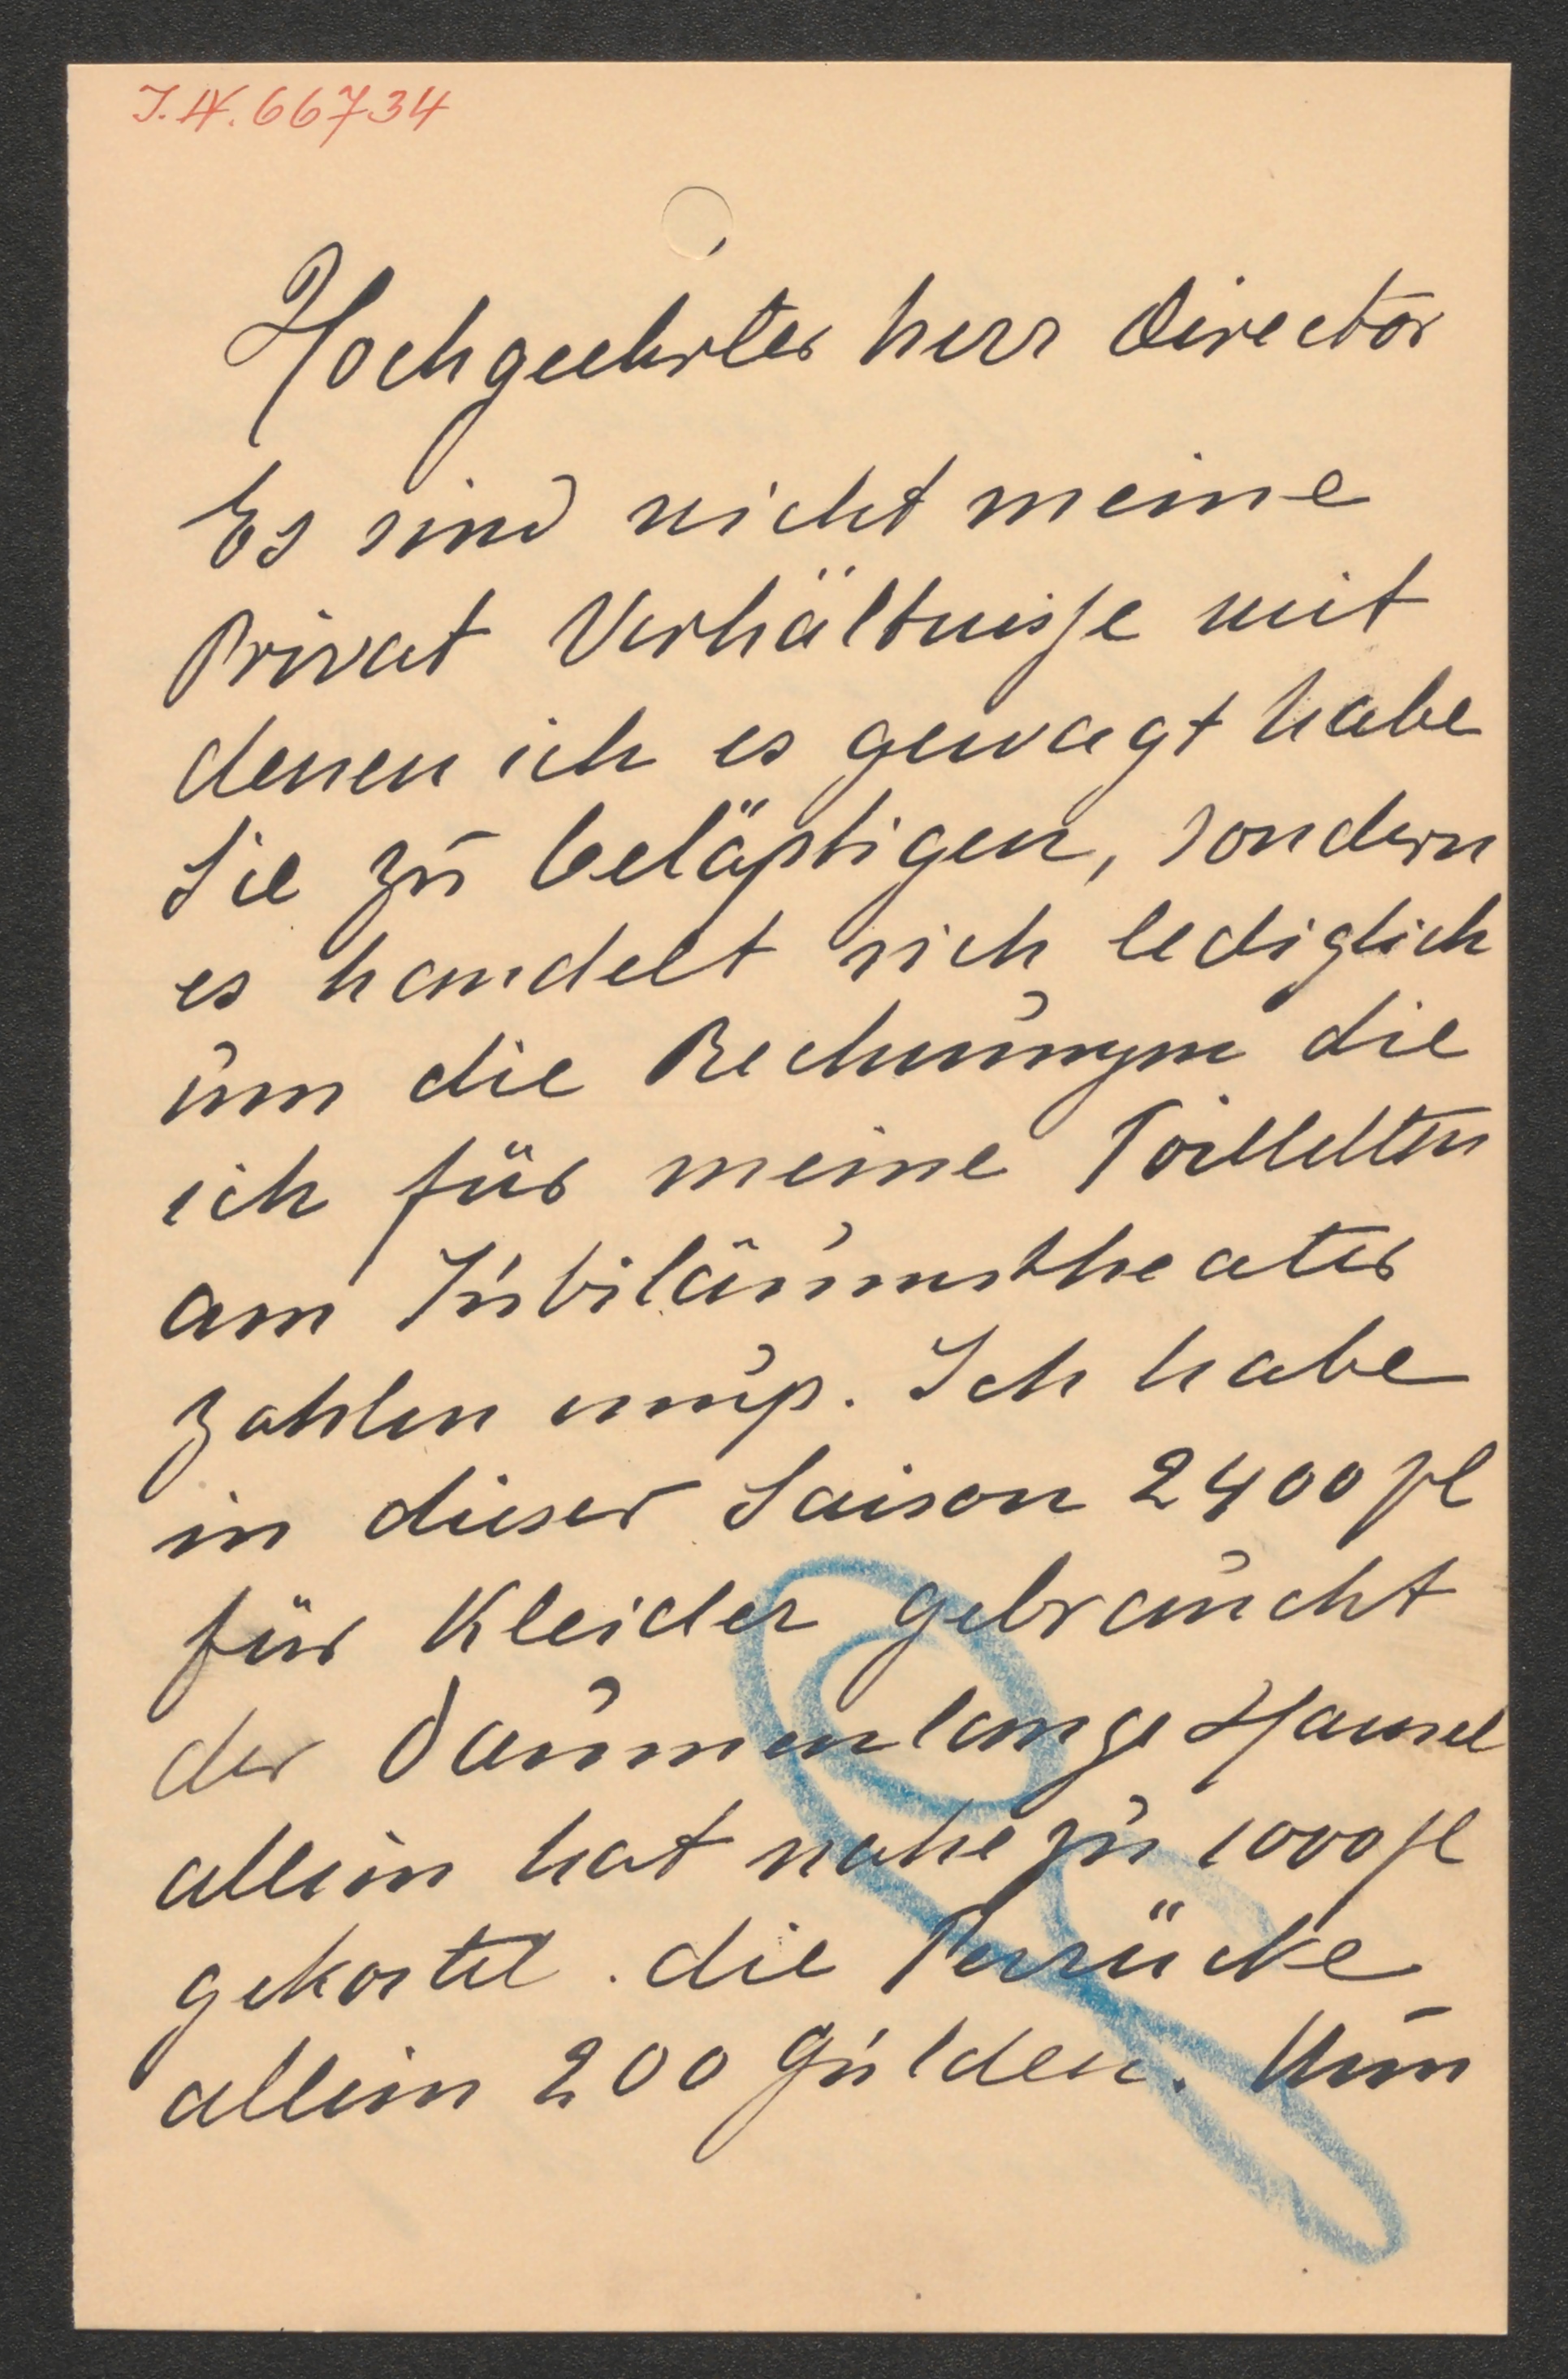 I.N. 66734
Hochgeehrter herr Director
Es sind nicht meine
Privat Verhältnisse mit
denen ich es gewagt habe
Sie zu beläßtigen, sondern
es handelt sich lediglich
um die Rechnungen die
ich für meine Toilletten
am Jubiläumstheater
zahlen muß. Ich habe
in dieser Saison 2400 fl
für Kleider gebraucht
der Daumenlange Hansel
allein hat nahe zu 1000 fl
gekostet. die Perrücke
allein 200 Gulden. Nun